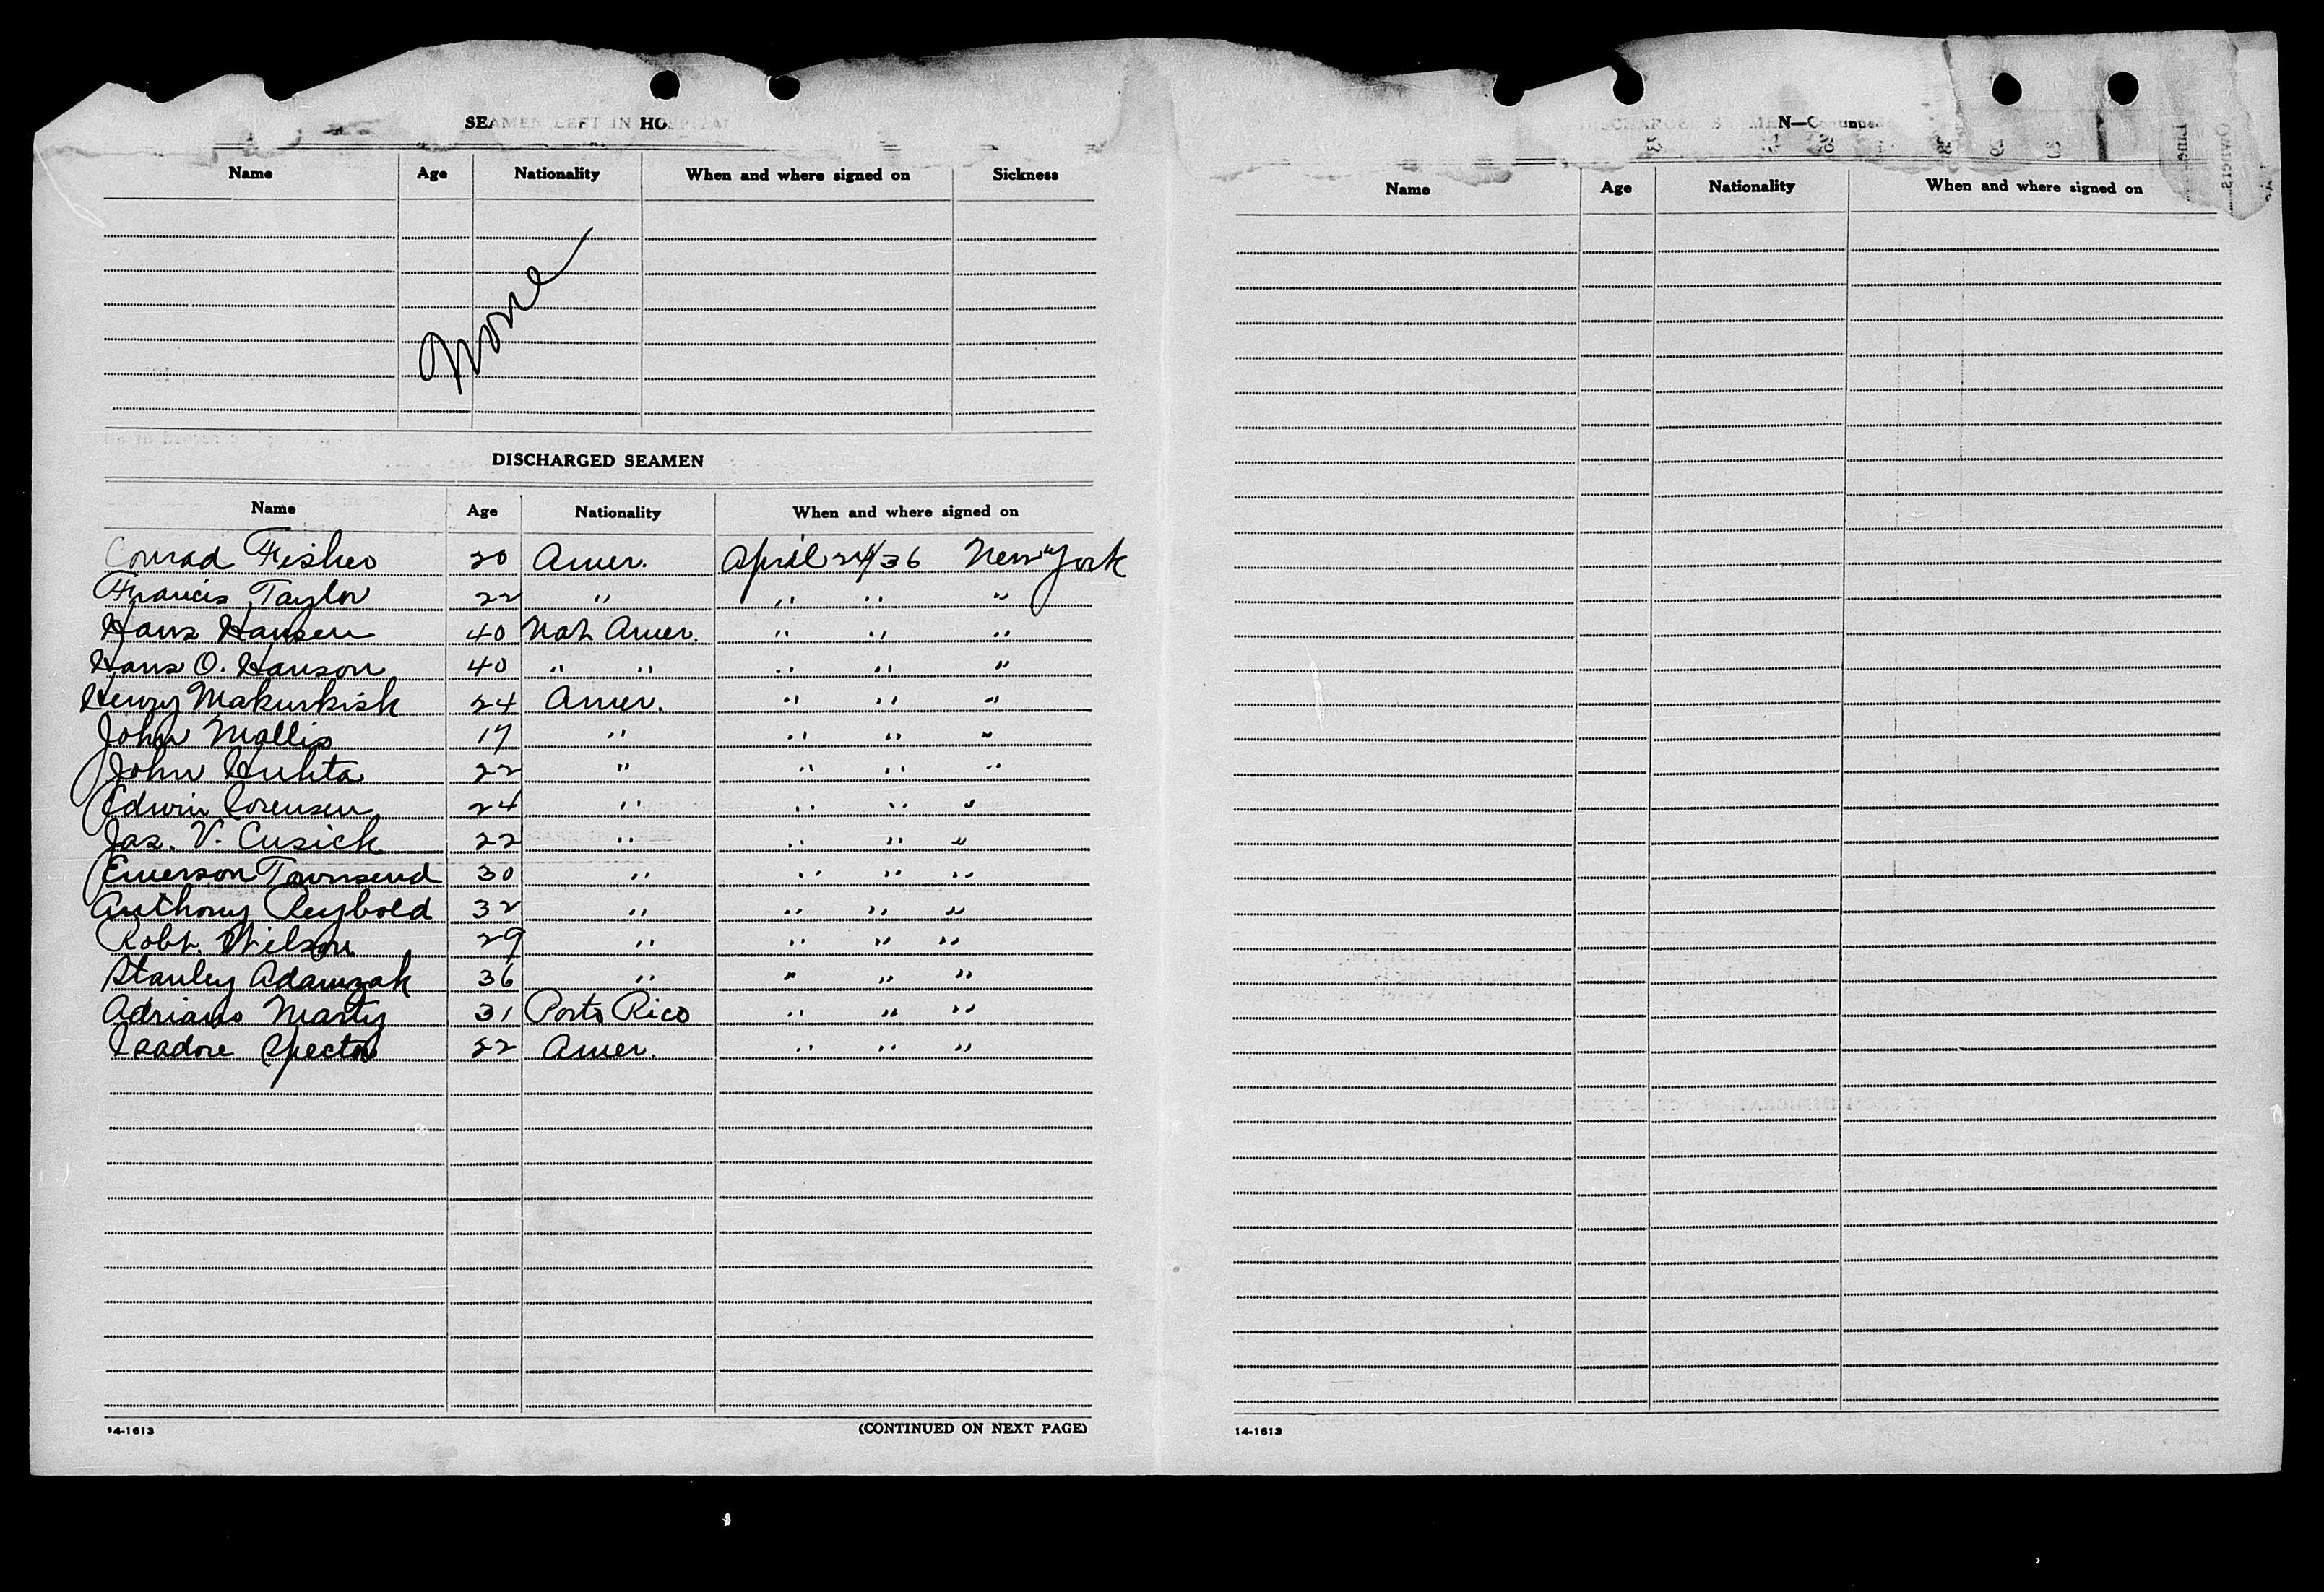 SEAMEN LEFT IN HOSPITAL
Name Age Nationality When and where signed on Sickness
None
DISCHARGED SEAMEN
Name Age Nationality When and where signed on
Conrad Fisher 20 Amer. April 24/36 New York
Francis Taylor 22 " " " "
Hans Hansen 40 Nat. Amer. " " "
Hans O. Hanson 40 " " " " "
Henry Makurkish 24 Amer. " " "
John Mallis 17 " " " "
John Huhta 22 " " " "
Edwin Sorensen 24 " " " "
Jas. V. Cusick 22 " " " "
Emerson Townsend 30 " " " "
Anthony Reybold 32 " " " "
Robt. Wilson 29 " " " "
Stanley Adamzak 36 " " " "
Adriano Marty 31 Porto Rico " " "
Isadore Spector 22 Amer. " " "
14-1613 (CONTINUED ON NEXT PAGE)
DISCHARGED SEAMEN—Continued
Name Age Nationality When and where signed on
14-1613